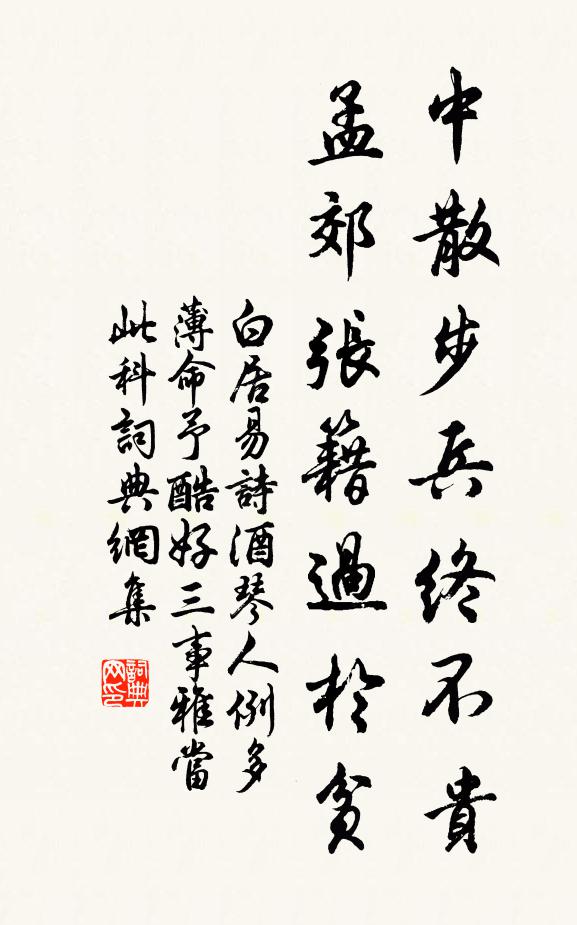 中散步兵終不貴
孟郊張籍過於貧
白居易詩酒琴人例多
薄命予酷好三事雅當
此科詞典網集
詞典
网印